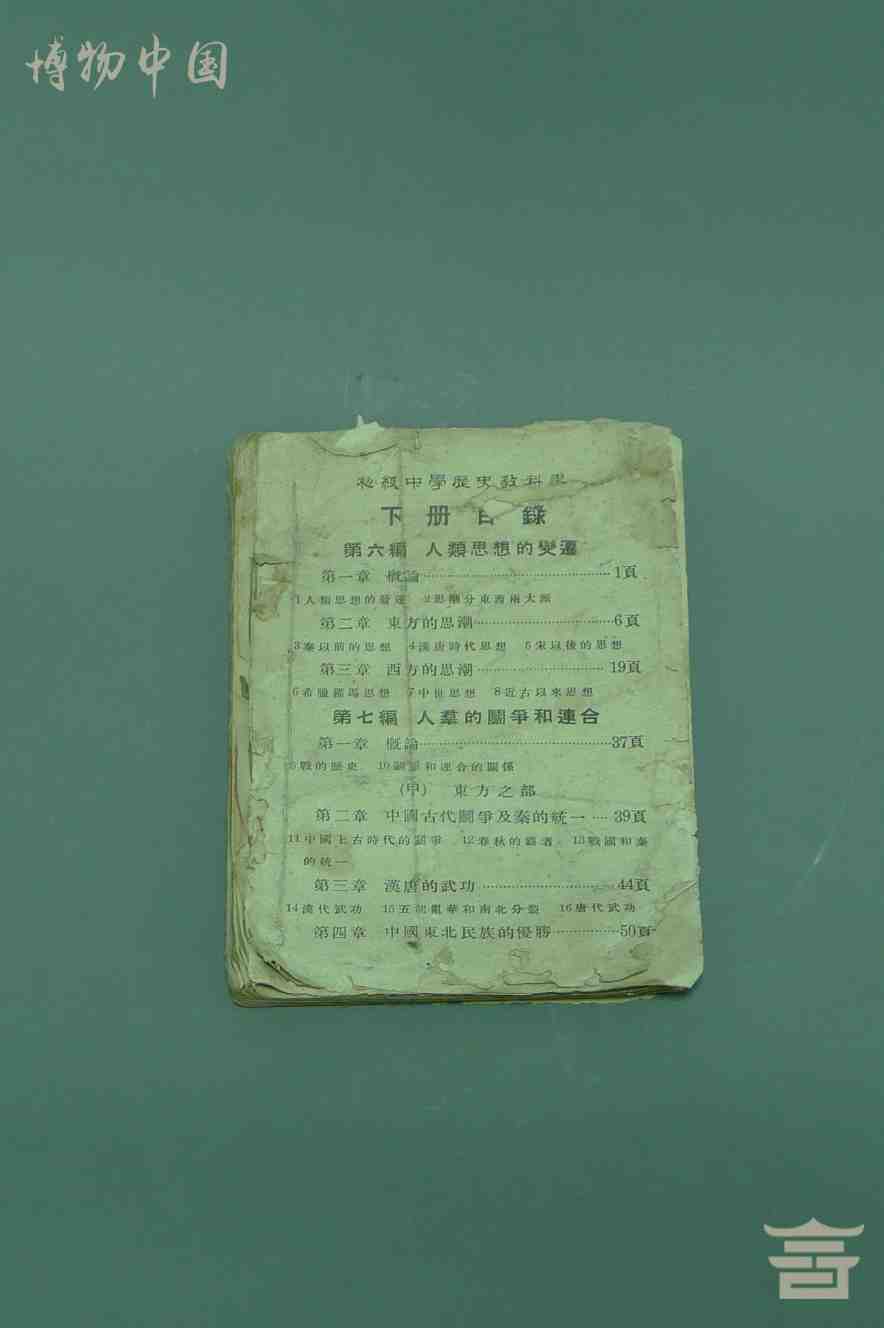 博物中国
初級中學歷史教科書
下册目錄
第六編 人類思想的變遷
第一章 概論……1頁
1人類思想的發達 2思潮分東西兩大派
第二章 東方的思潮……6頁
3秦以前的思想 4漢唐時代思想 5宋以後的思想
第三章 西方的思潮……19頁
6希臘羅馬思想 7中世思想 8近古以來思想
第七編 人羣的鬭爭和連合
第一章 概論……37頁
9戰的歷史 10鬭爭和連合的關係
(甲) 東方之部
第二章 中國古代鬭爭及秦的統一……39頁
11中國上古時代的鬭爭 12春秋的霸者 13戰國和秦
的統一
第三章 漢唐的武功……44頁
14漢代武功 15五胡亂華和南北分裂 16唐代武功
第四章 中國東北民族的優勝……50頁